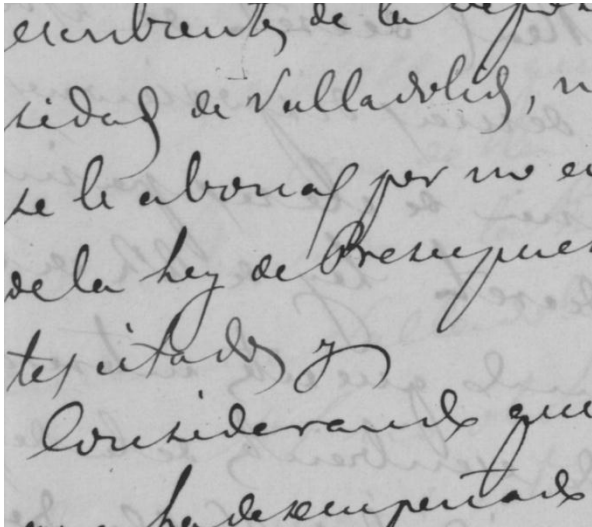 escribiente de la
sidad de Valladolid,
se le abona por no
de la Ley de Presupues
tos citada y
Considerando que
ha desempeñado